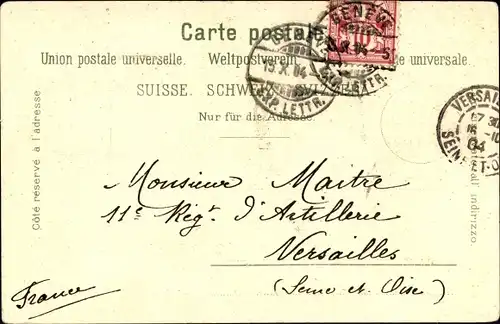 Carte postale
Union postale universelle. Weltpostverein. universale.
SUISSE. SCHWEIZ. SVIZZERA.
Nur für die Adresse.
Côté réservé à l'adresse
indirizzo.
GENÈVE
EXP. LETTR.
15.X.04
EXP. LETTR.
VERSAILLES
04
SEINE-ET-O
Monsieur Maitre
11e Régt. d'Artillerie
Versailles
(Seine et Oise)
France